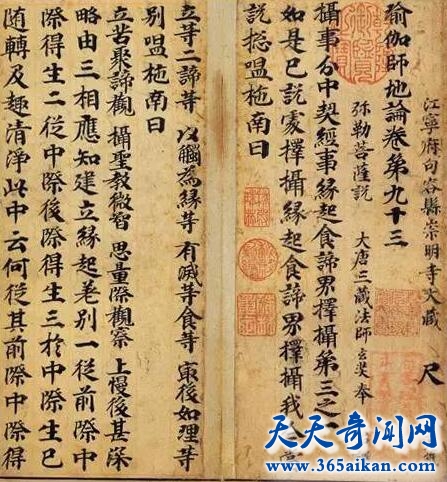 江寧府句容縣崇明寺大藏 尺
瑜伽師地論卷第九十三
弥勒菩薩説 大唐三藏法師玄奘奉
攝事分中契經事緣起食諦界擇攝第三之一
如是已説處擇攝緣起食諦界擇攝我
説捴嗢柁南曰
立等二諦等 以觸為緣等 有滅等食等 㝡後如理等
別嗢柁南曰
立苦聚諦觀 攝聖教微智 思量際觀察 上慢後甚深
略由三相應知建立緣起差別一從前際中
際得生二從中際後際得生三於中際已
随轉及趣清淨此中云何從其前際中際得
天天奇闻网
www.365aikan.com